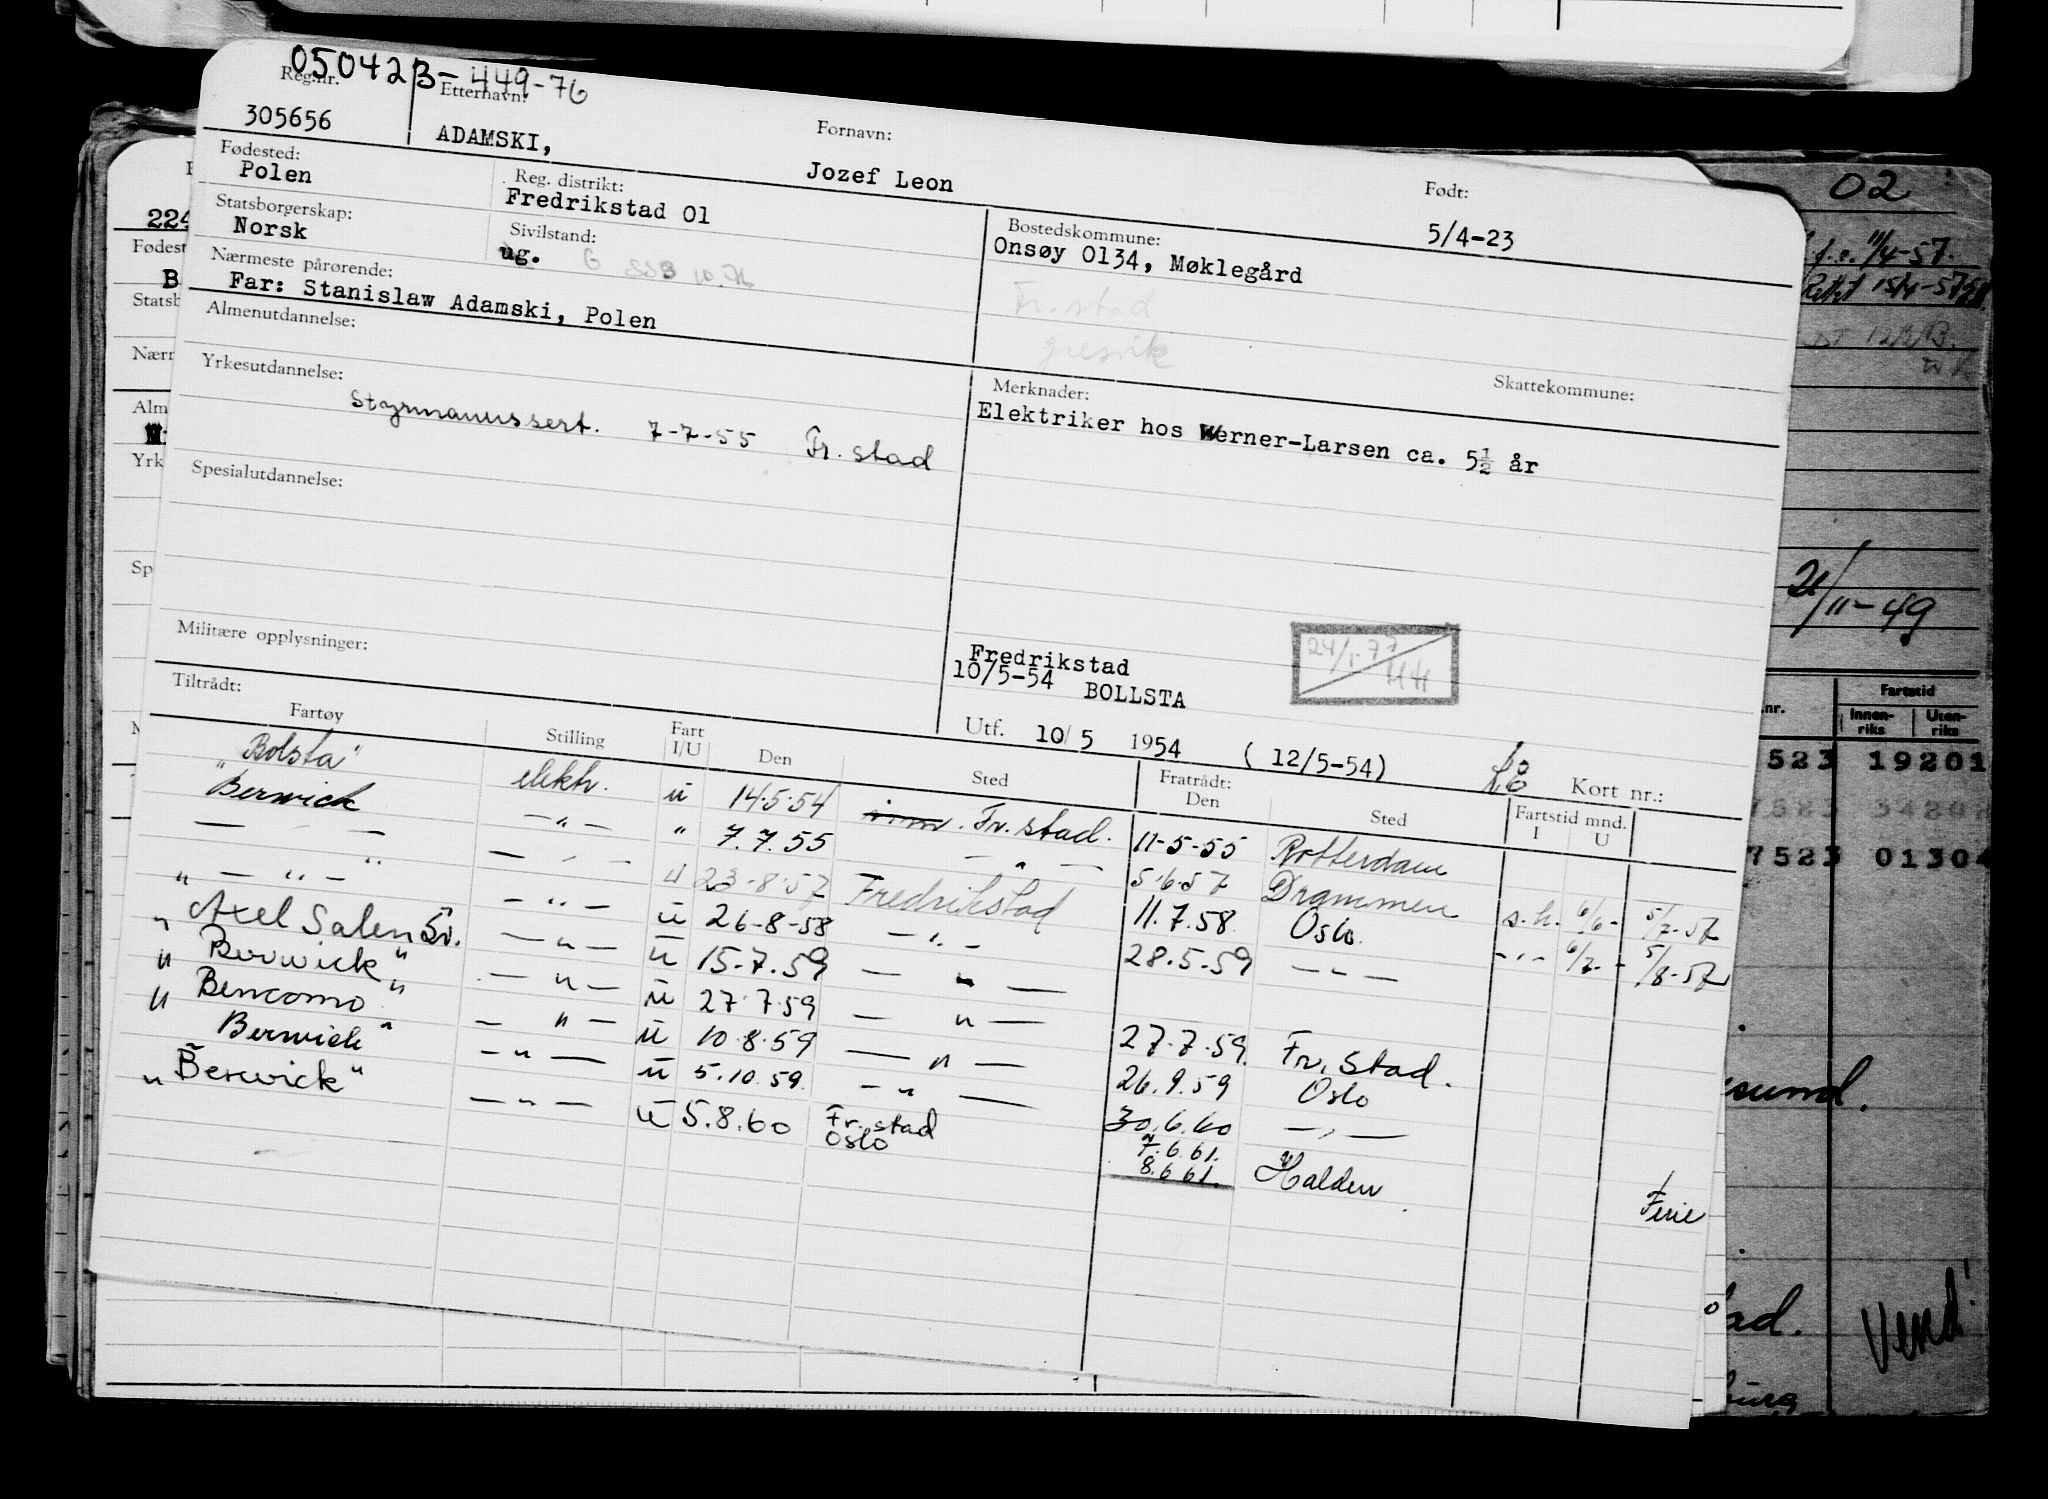 050423-449-76
Reg.nr. Etternavn: Fornavn: Født:
305656 ADAMSKI, Jozef Leon 5/4-23
Fødested: Reg. distrikt: Bostedskommune:
Polen Fredrikstad 01 Onsøy 0134, Møklegård
Statsborgerskap: Sivilstand:
Norsk ug. G SSB 10.76
Fr.stad
gresvik
Nærmeste pårørende:
Far: Stanislaw Adamski, Polen
Almenutdannelse: Skattekommune:
Yrkesutdannelse: Merknader:
Styrmannssert. 7-7-55 Fr. stad Elektriker hos Werner-Larsen ca. 5½ år
Spesialutdannelse:
Militære opplysninger:
Fredrikstad
10/5-54 BOLLSTA
24/1-77
Utf. 10/5 1954 (12/5-54) Kort nr.:
Tiltrådt: Fratrådt:
Fartøy Stilling Fart I/U Den Sted Den Sted Fartstid mnd. I U
"Bolsta" elektr. u 14.5.54 Fr. stad. 11-5-55 Rotterdam
Berwick — " — " 7.7.55 — " — 5.6.57 Drammen s.h. 6/6- 5/7-57
— " — — " — u 23.8.57 Fredrikstad 11.7.58 Oslo - " - 6/7- 5/8-57
" — " — — " — u 26-8-58 — " — 28.5-59 — " —
" Axel Salen Sv. — " — u 15-7.59 — " —
" Berwick " — " — u 27.7.59 — " — 27.7.59. Fr. stad.
" Bencomo " — " — u 10.8.59 — " — 26.9.59 Oslo
" Berwick " — " — u 5.10.59. — " — 30.6.60 — " —
" Berwick " — " — u 5.8.60 Fr. stad 7.6.61.
Oslo 8.6 61. Halden Ferie
02
11/4-57.
15/4-57
21/11-49
.nr. Fartstid
Innenriks Utenriks
523 19201
7523 34202
7523 01304
sund.
ad.
Vend!
burg
224
Fødest
B
Statsb
Nærn
Alm
Yrk
Sp